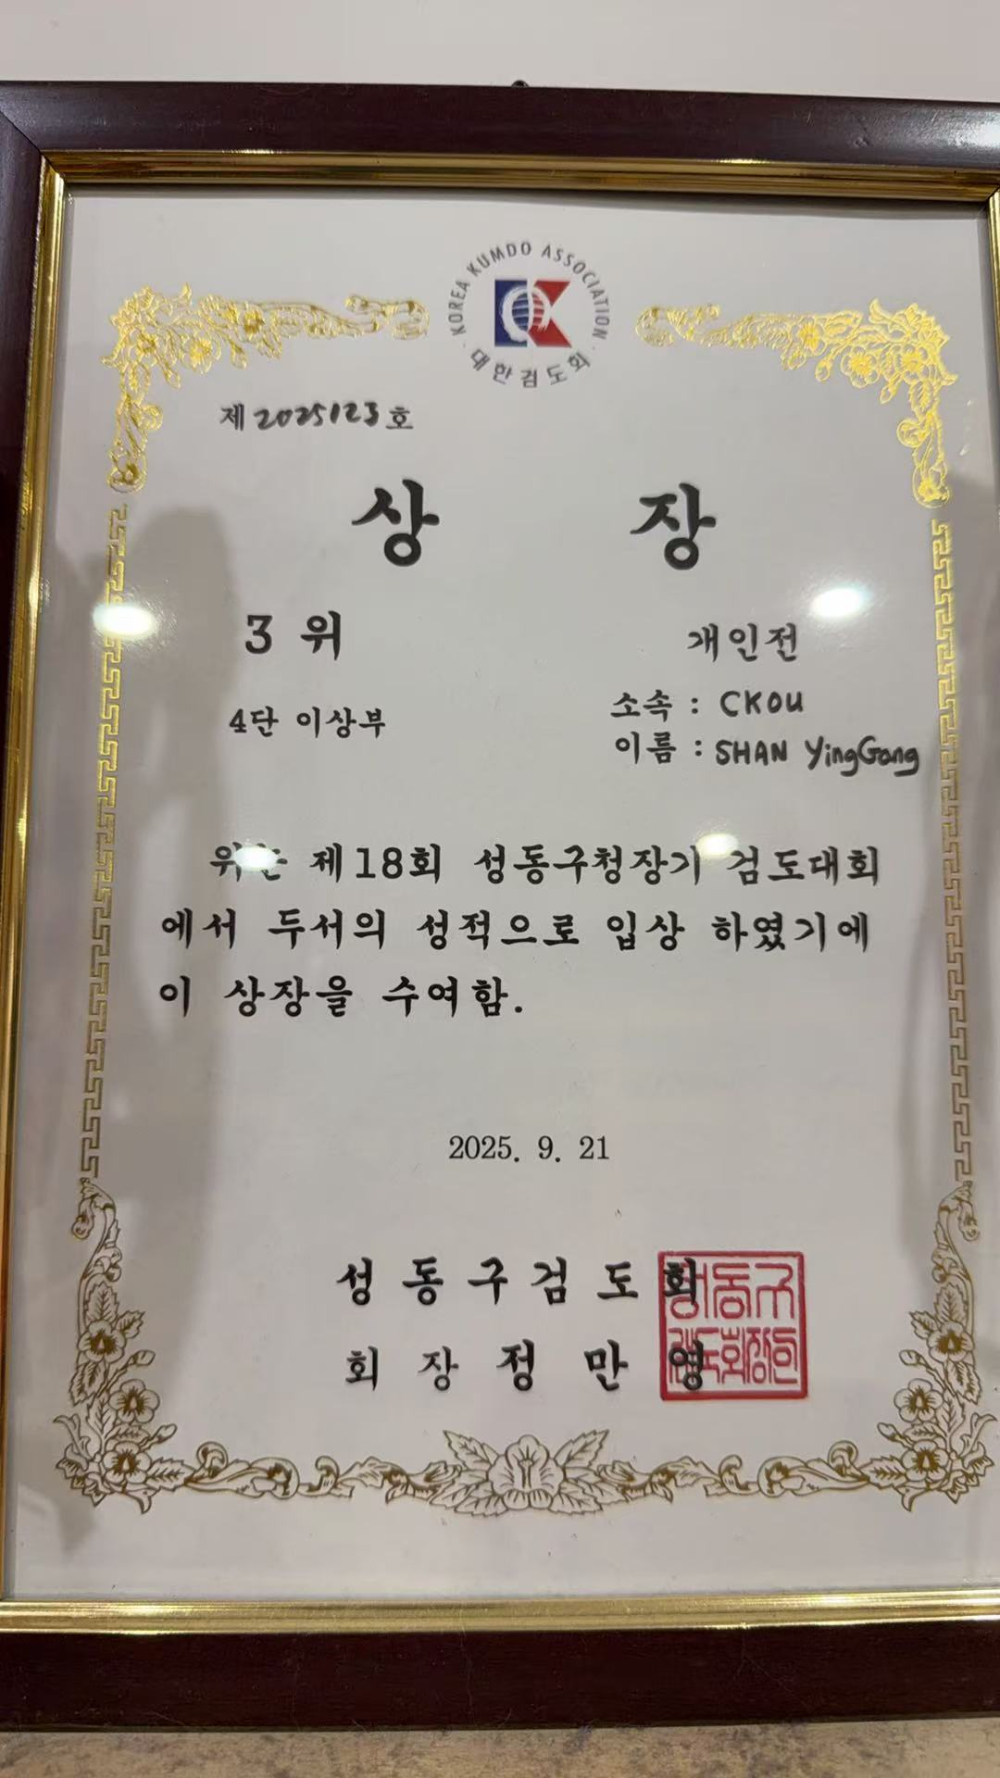 KOREA KUMDO ASSOCIATION
대한검도회
제 2025123 호
상 장
3 위
개인전
4단 이상부
소속 : CKOU
이름 : SHAN YingGang
위는 제18회 성동구청장기 검도대회
에서 두서의 성적으로 입상 하였기에
이 상장을 수여함.
2025. 9. 21
성동구검도회
회장 정만영